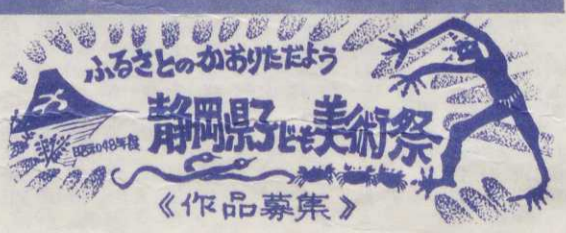 ふるさとのかおりただよう
昭和48年度
静岡県子ども美術祭
《作品募集》